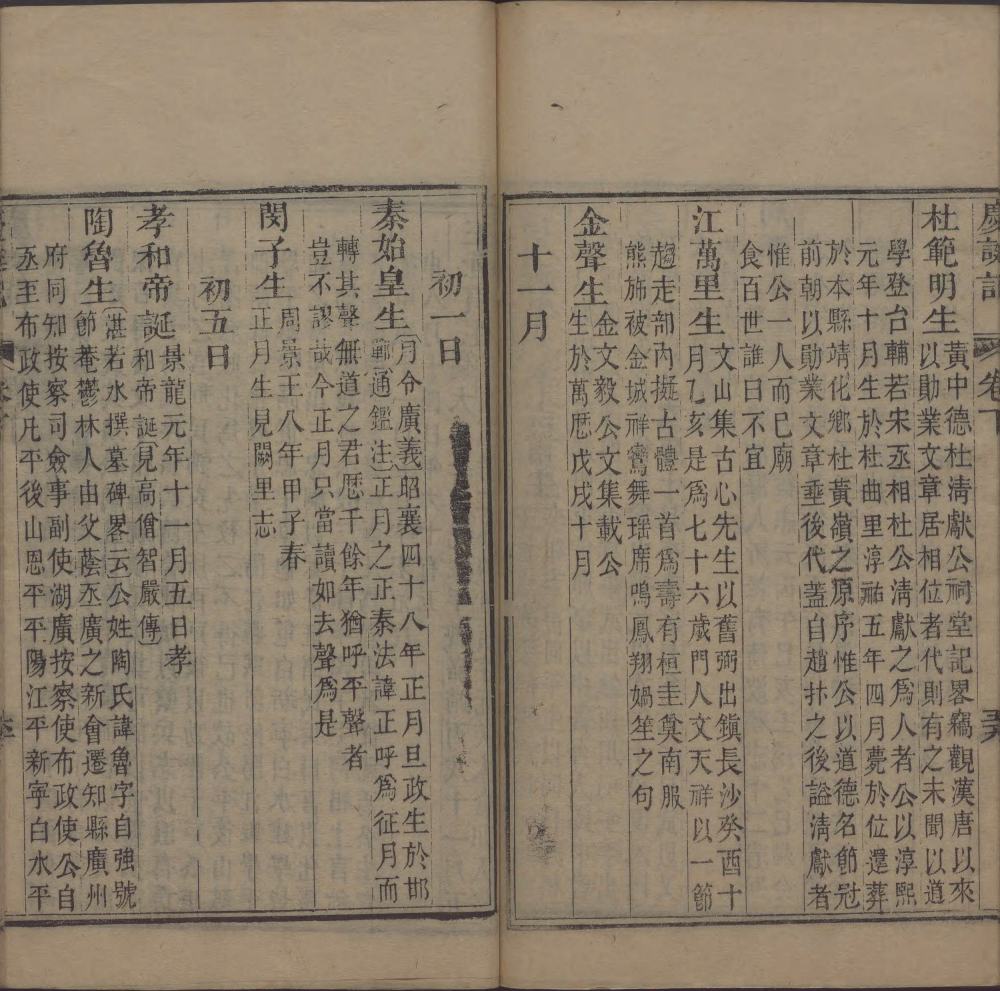 慶誕記
卷下
杜範明生黃中德杜清獻公祠堂記畧竊觀漢唐以來
以勛業文章居相位者代則有之未聞以道
學登台輔若宋丞相杜公清獻之爲人者公以淳熙
元年十月生於杜曲里淳祐五年四月薨於位還葬
於本縣靖化鄉杜黃嶺之原序惟公以道德名節冠
前朝以勛業文章垂後代蓋自趙抃之後謚清獻者
惟公一人而已廟
食百世誰曰不宜
江萬里生文山集古心先生以舊弼出鎭長沙癸酉十
月乙亥是爲七十六歲門人文天祥以一節
趨走部內擬古體一首爲壽有桓圭奠南服
熊旆被金城祥鸞舞瑶席鳴鳳翔媧笙之句
金聲生金文毅公文集載公
生於萬厯戊戌十月
十一月
初一日
秦始皇生月令廣義昭襄四十八年正月旦政生於邯
鄲通鑑注正月之正秦法諱正呼爲征月而
轉其聲無道之君厯千餘年猶呼平聲者
豈不謬哉今正月只當讀如去聲爲是
閔子生周景王八年甲子春
正月生見闕里志
初五日
孝和帝誕景龍元年十一月五日孝
和帝誕見高僧智嚴傳
陶魯生湛若水撰墓碑畧云公姓陶氏諱魯字自強號
節菴鬱林人由父蔭丞廣之新會遷知縣廣州
府同知按察司僉事副使湖廣按察使布政使公自
丞至布政使凡平後山恩平平陽江平新寜白水平